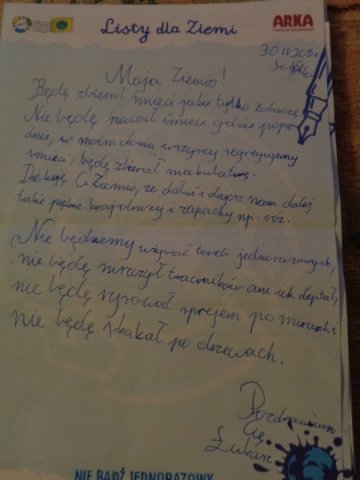 Listy dla Ziemi
ARKA
30 IV
Moja Ziemio!
Będę zbierał śmieci jakie tylko zobaczę
Nie będę rzucał śmieci gdzie popa-
dnie, w moim domu wszyscy segregujemy
śmieci, będę zbierał makulaturę.
Dziękuję Ci Ziemio, że dałaś i dajesz nam dalej
takie piękne krajobrazy i zapachy np. róż.
Nie będziemy używać toreb jednorazowych,
nie będę niszczył trawników ani ich deptał,
nie będę rysował sprejem po murach i
nie będę skakał po drzewach.
Pozdrawiam
Cię
Łukasz
NIE BĄDŹ JEDNORAZOWY